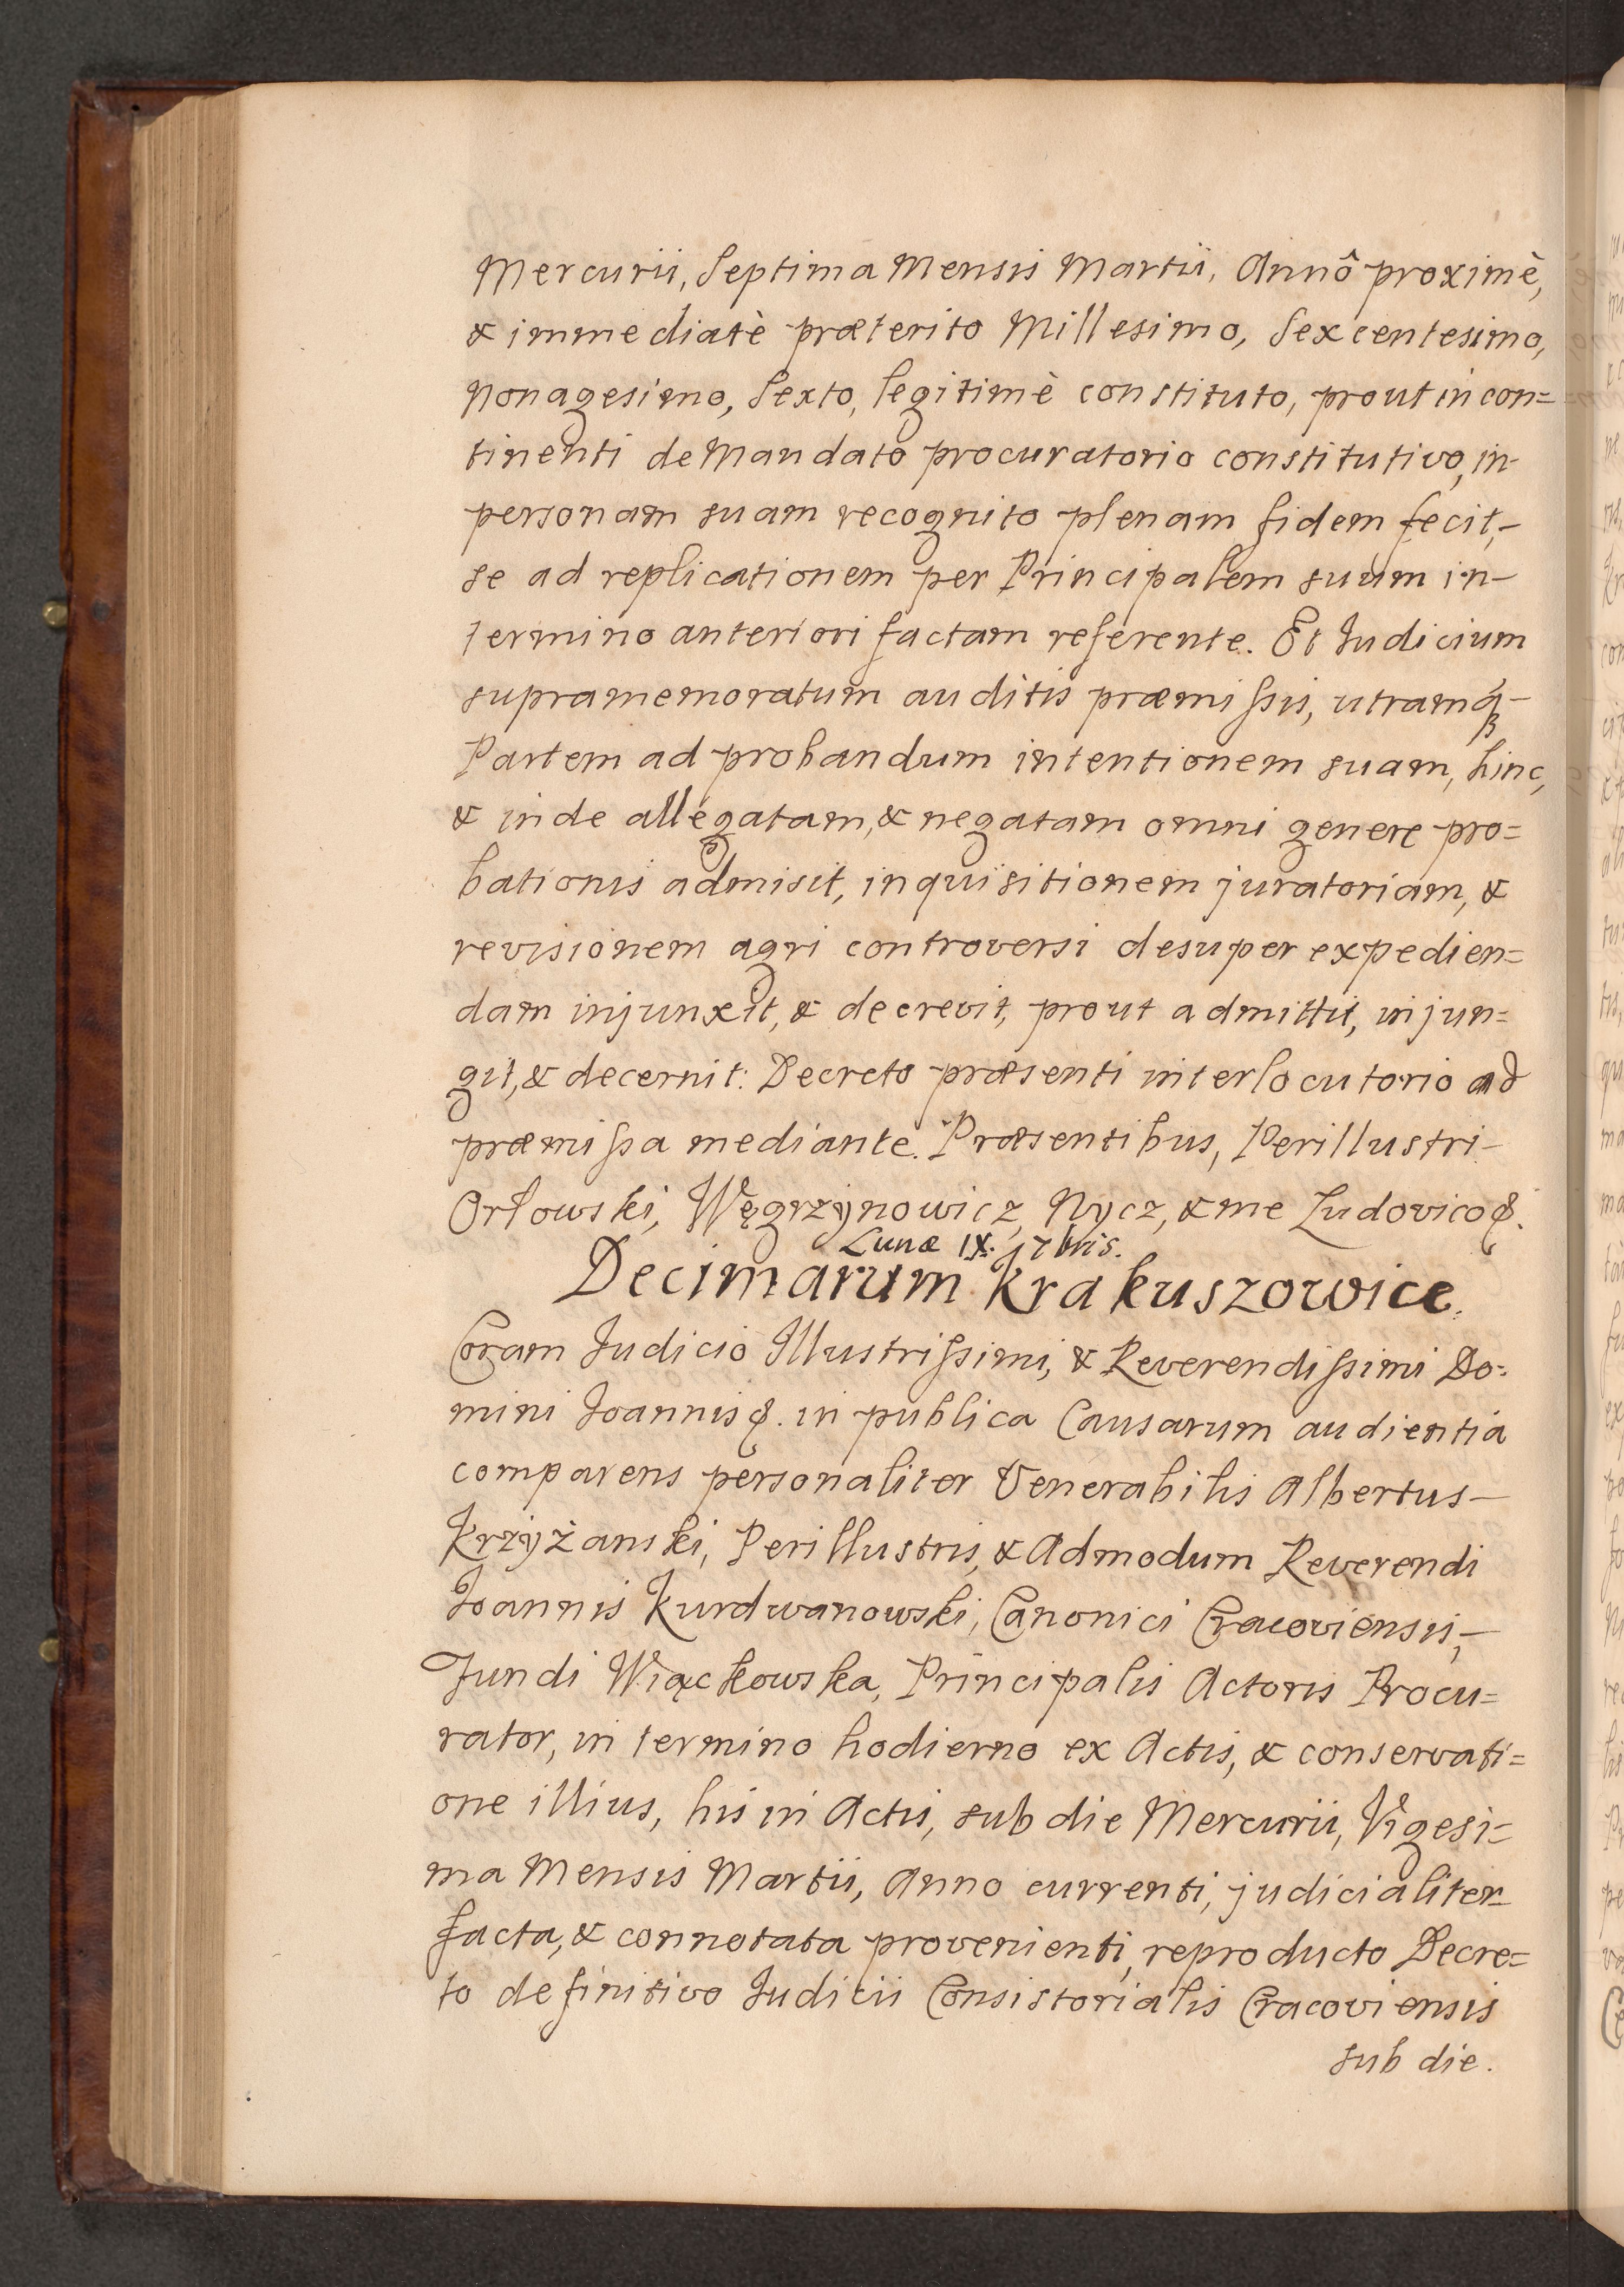 Mercurii, Septima Mensis Martii, Annô proximè,
& immediatè præterito Millesimo, Sexcentesimo,
Nonagesimo, Sexto, legitimè constituto, prout incon=
tinenti de Mandato procuratorio constitutivo, in
personam suam recognito plenam fidem fecit,
se ad replicationem per Principalem suum in
termino anteriori factam referente. Et Judicium
supramemoratum auditis præmissis, utramq́ꝫ
Partem ad probandum intentionem suam, hinc,
& inde allegatam, & negatam omni genere pro=
bationis admisit, inquisitionem juratoriam, &
revisionem agri controversi desuper expedien=
dam injunxit, & decrevit, prout admittit, injun=
git, & decernit: Decreto præsenti interlocutorio ad
præmissa mediante. Præsentibus, Perillustri
Orłowski, Węgrzynowicz, Nycz, & me Ludovico &.
Lunæ IX. 7bris.
Decimarum Krakuszowice.
Coram Judicio Illustrissimi, & Reverendissimi Do:
mini Joannis &. in publica Causarum audientia
comparens personaliter Venerabilis Albertus
Krzyżanski, Perillustris, & Admodum Reverendi
Joannis Kurdwanowski, Canonici Cracoviensis,
Fundi Wiąckowska, Principalis Actoris Procu=
rator, in termino hodierno ex Actis, & conservati=
one illius, his in Actis, sub die Mercurii, Vigesi=
ma Mensis Martii, Anno currenti, judicialiter
facta, & connotata provenienti, reproducto Decre=
to definitivo Judicii Consistorialis Cracoviensis
sub die.